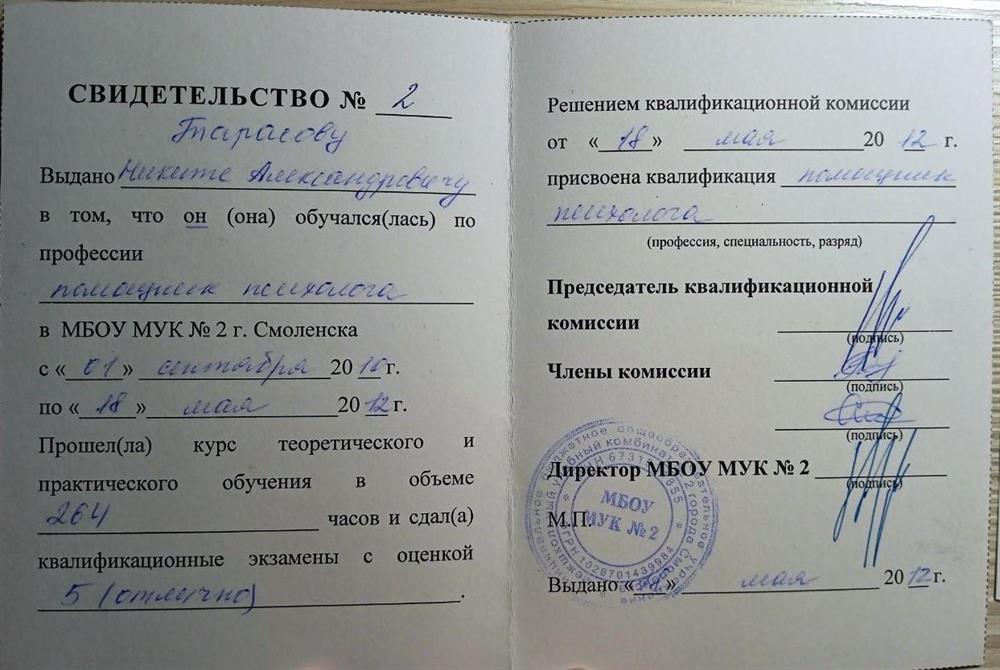 СВИДЕТЕЛЬСТВО № 2
Тарасову
Выдано Никите Александровичу
в том, что он (она) обучался(лась) по
профессии
помощник психолога
в МБОУ МУК № 2 г. Смоленска
с « 01 » сентября 2010 г.
по « 18 » мая 2012 г.
Прошел(ла) курс теоретического и
практического обучения в объеме
264 часов и сдал(а)
квалификационные экзамены с оценкой
5 (отлично).
Решением квалификационной комиссии
от « 18 » мая 2012 г.
присвоена квалификация помощник
психолога
(профессия, специальность, разряд)
Председатель квалификационной
комиссии
(подпись)
Члены комиссии
(подпись)
(подпись)
Директор МБОУ МУК № 2
(подпись)
М.П.
МБОУ
МУК № 2
Выдано « 18 » мая 2012 г.